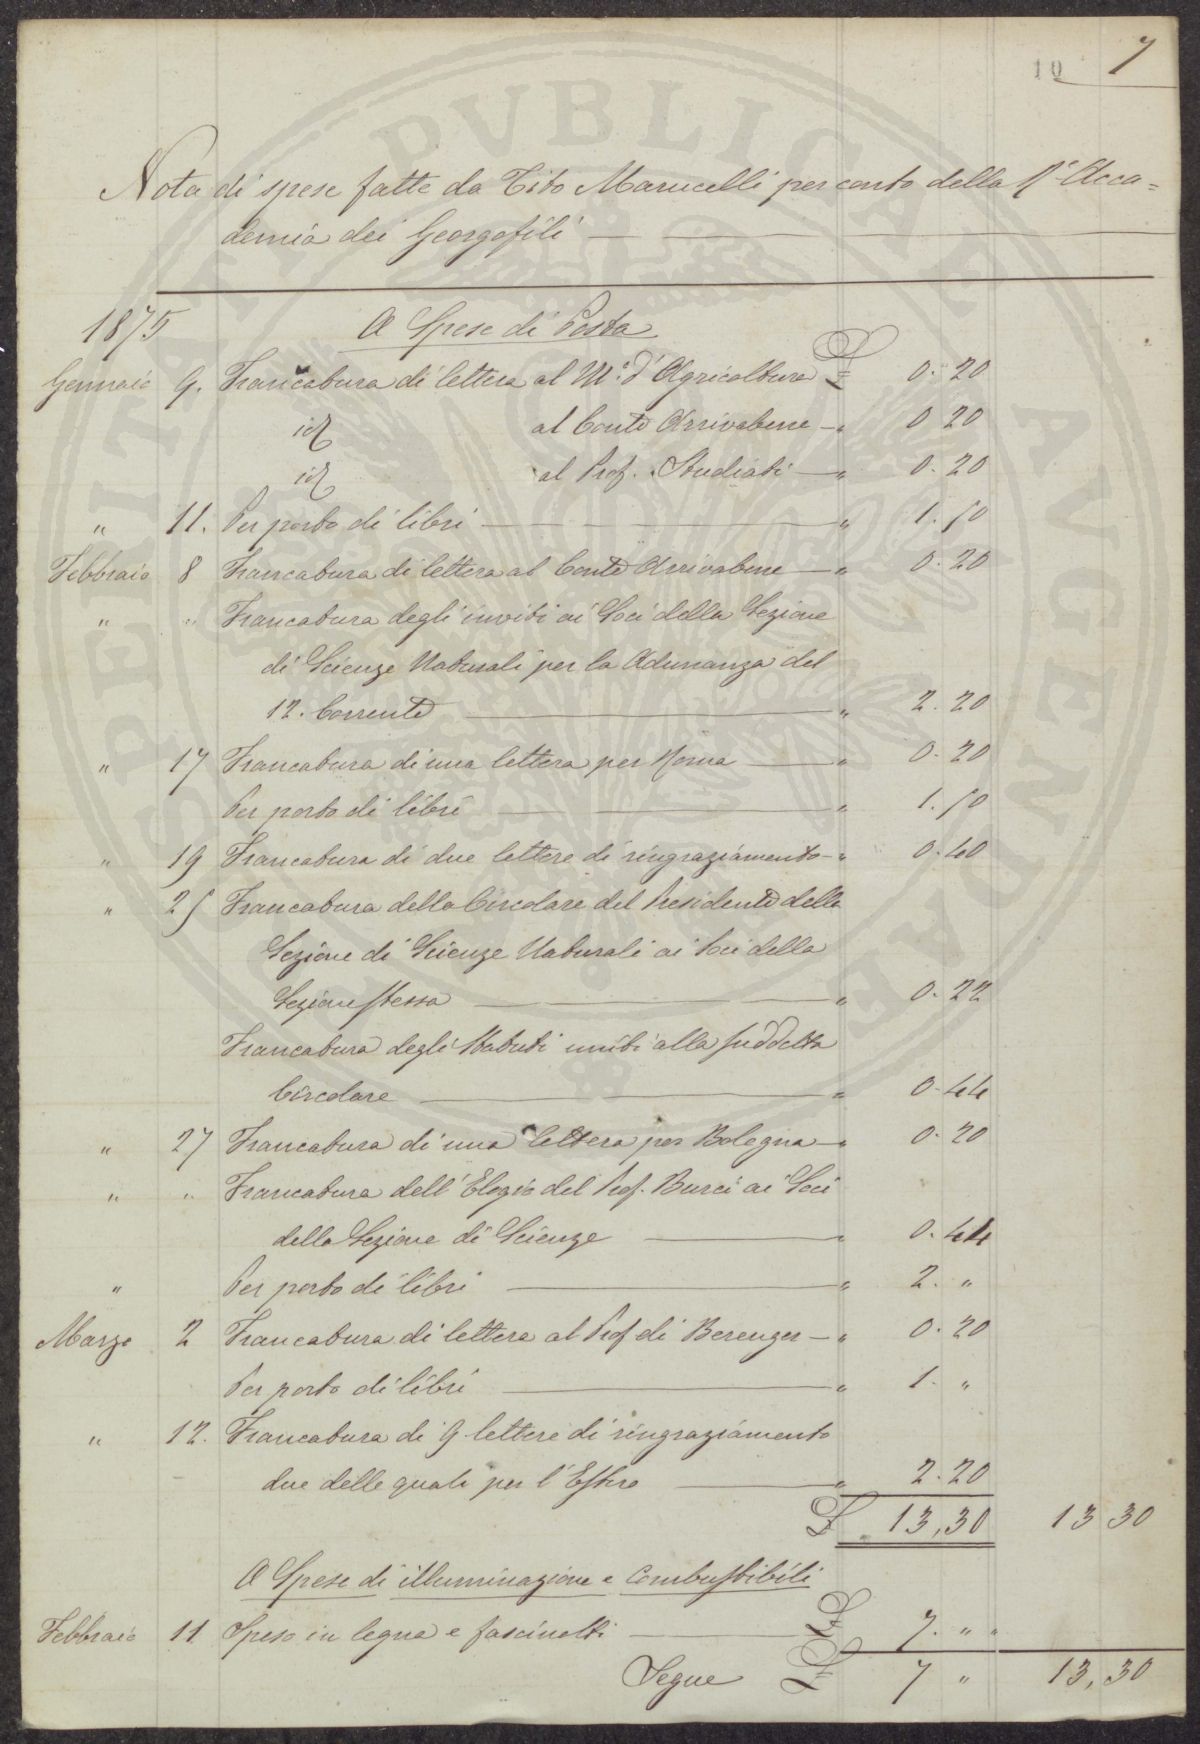 10 7
Nota di spese fatte da Tito Marucelli per conto della R. Acca=
demia dei Georgofili
1875 A Spese di Posta
Gennaio 9. Francatura di lettera al M.° d'Agricoltura £ 0. 20
id al Conte Arrivabene " 0 20
id al Prof. Studiati " 0. 20
" 11. Per porto di libri " 1. 50
Febbraio 8 Francatura di lettera al Conte Arrivabene " 0. 20
" " Francatura degli inviti ai Soci della Sezione
di Scienze Naturali per la Adunanza del
12. Corrente " 2. 20
" 17 Francatura di una lettera per Roma " 0. 20
Per porto di libri " 1. 50
" 19 Francatura di due lettere di ringraziamento " 0. 40
" 25 Francatura della Circolare del Presidente della
Sezione di Scienze Naturali ai Soci della
Sezione stessa " 0. 22
Francatura degli Statuti uniti alla suddetta
Circolare " 0. 44
" 27 Francatura di una lettera per Bologna " 0. 20
" " Francatura dell'Elogio del Prof. Burci ai Soci
della Sezione di Scienze " 0. 44
" Per porto di libri " 2. "
Marzo 2 Francatura di lettera al Prof di Berenger " 0. 20
Per porto di libri " 1. "
" 12. Francatura di 9 lettere di ringraziamento
due delle quali per l'Estero " 2. 20
£ 13,30 13 30
A Spese di illuminazione e Combustibili
Febbraio 11 Speso in legna e fascinotti £ 7. " "
Segue £ 7 " 13,30
SPERITATI PUBLICAE AUGENDAE